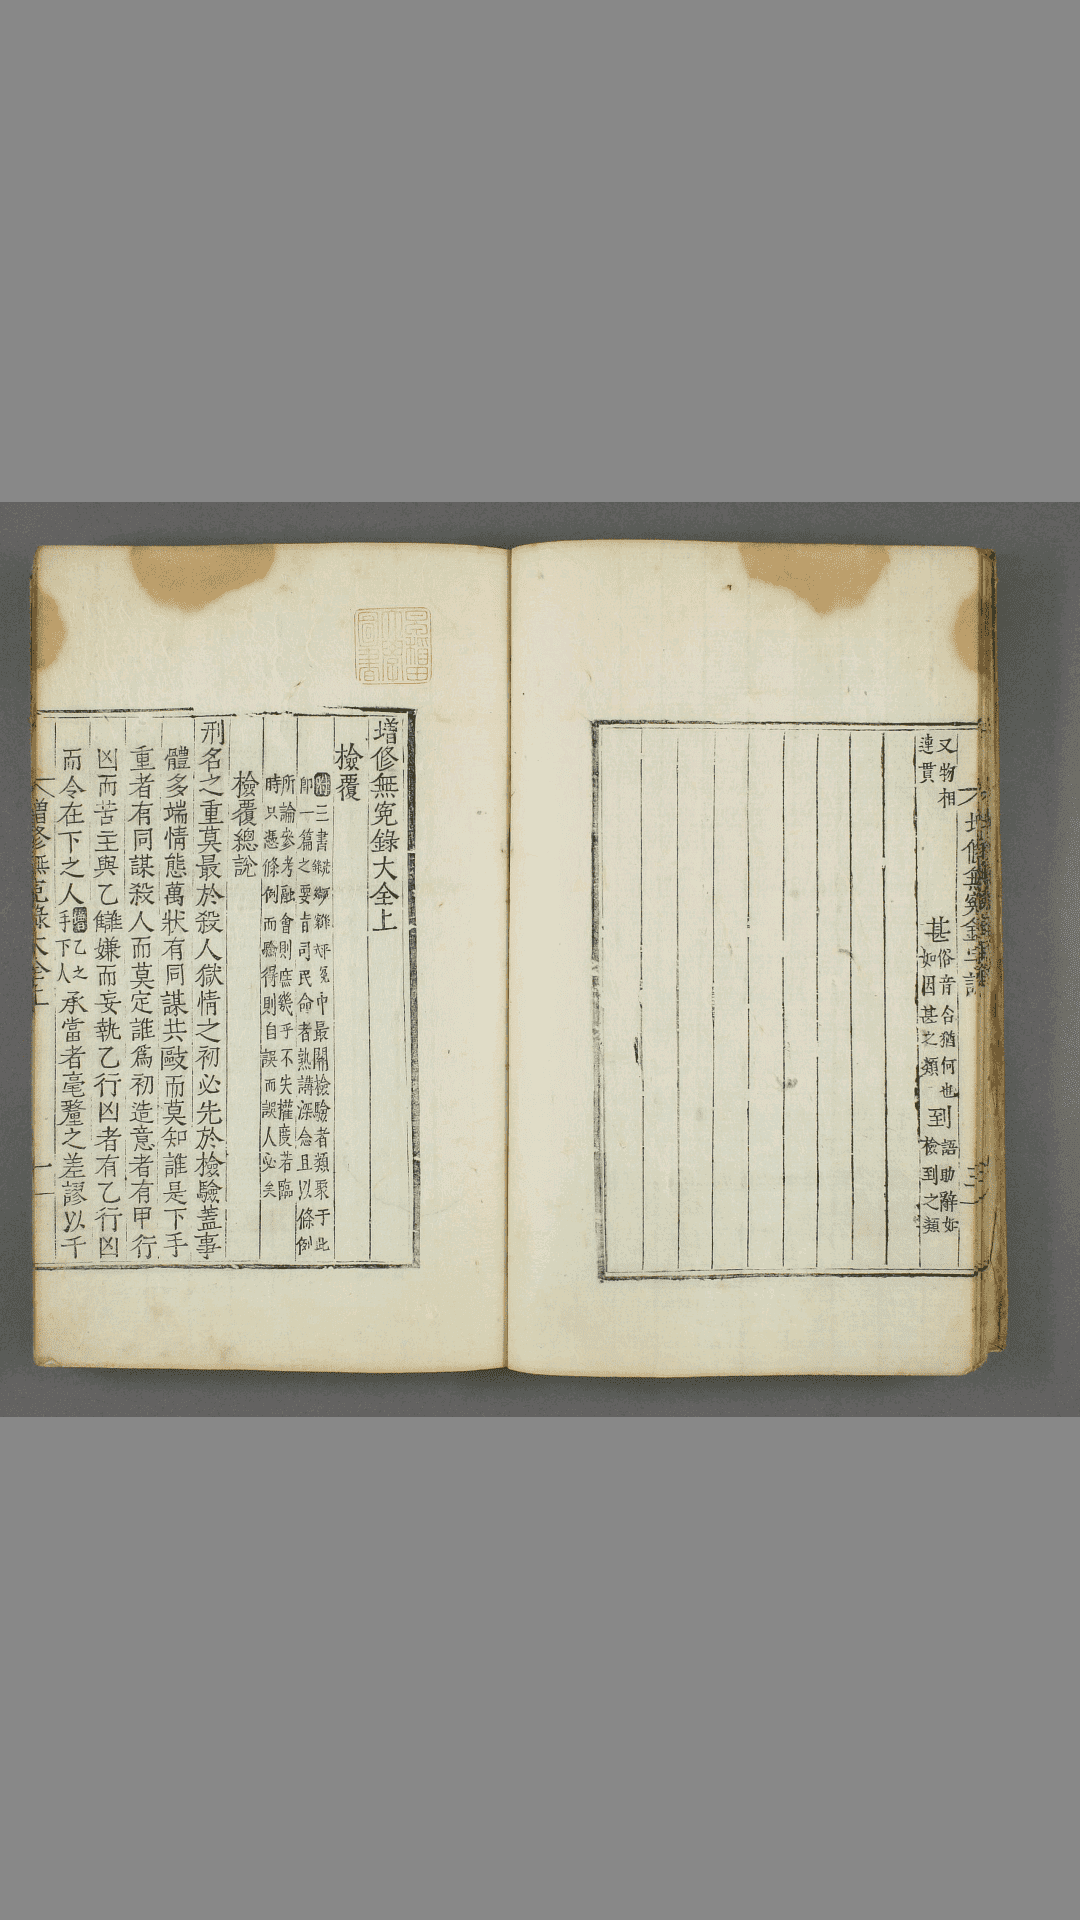 又物相
連貫
甚
俗音合猶何也
如因甚之類
到
語助辭如
檢到之類
增修無冤錄大全上
檢覆
附三書洗寃 平寃中最關檢驗者類聚于此
即一篇之要旨司民命者熟講深念且以條例
所論參考融會則庶幾乎不失權度若臨
時只憑條例而驗得則自誤而誤人必矣
檢覆總說
刑名之重莫最於殺人獄情之初必先於檢驗蓋事
體多端情態萬狀有同謀共毆而莫知誰是下手
重者有同謀殺人而莫定誰爲初造意者有甲行
凶而苦主與乙讎嫌而妄執乙行凶者有乙行凶
而令在下之人手增乙之下人承當者毫釐之差謬以千